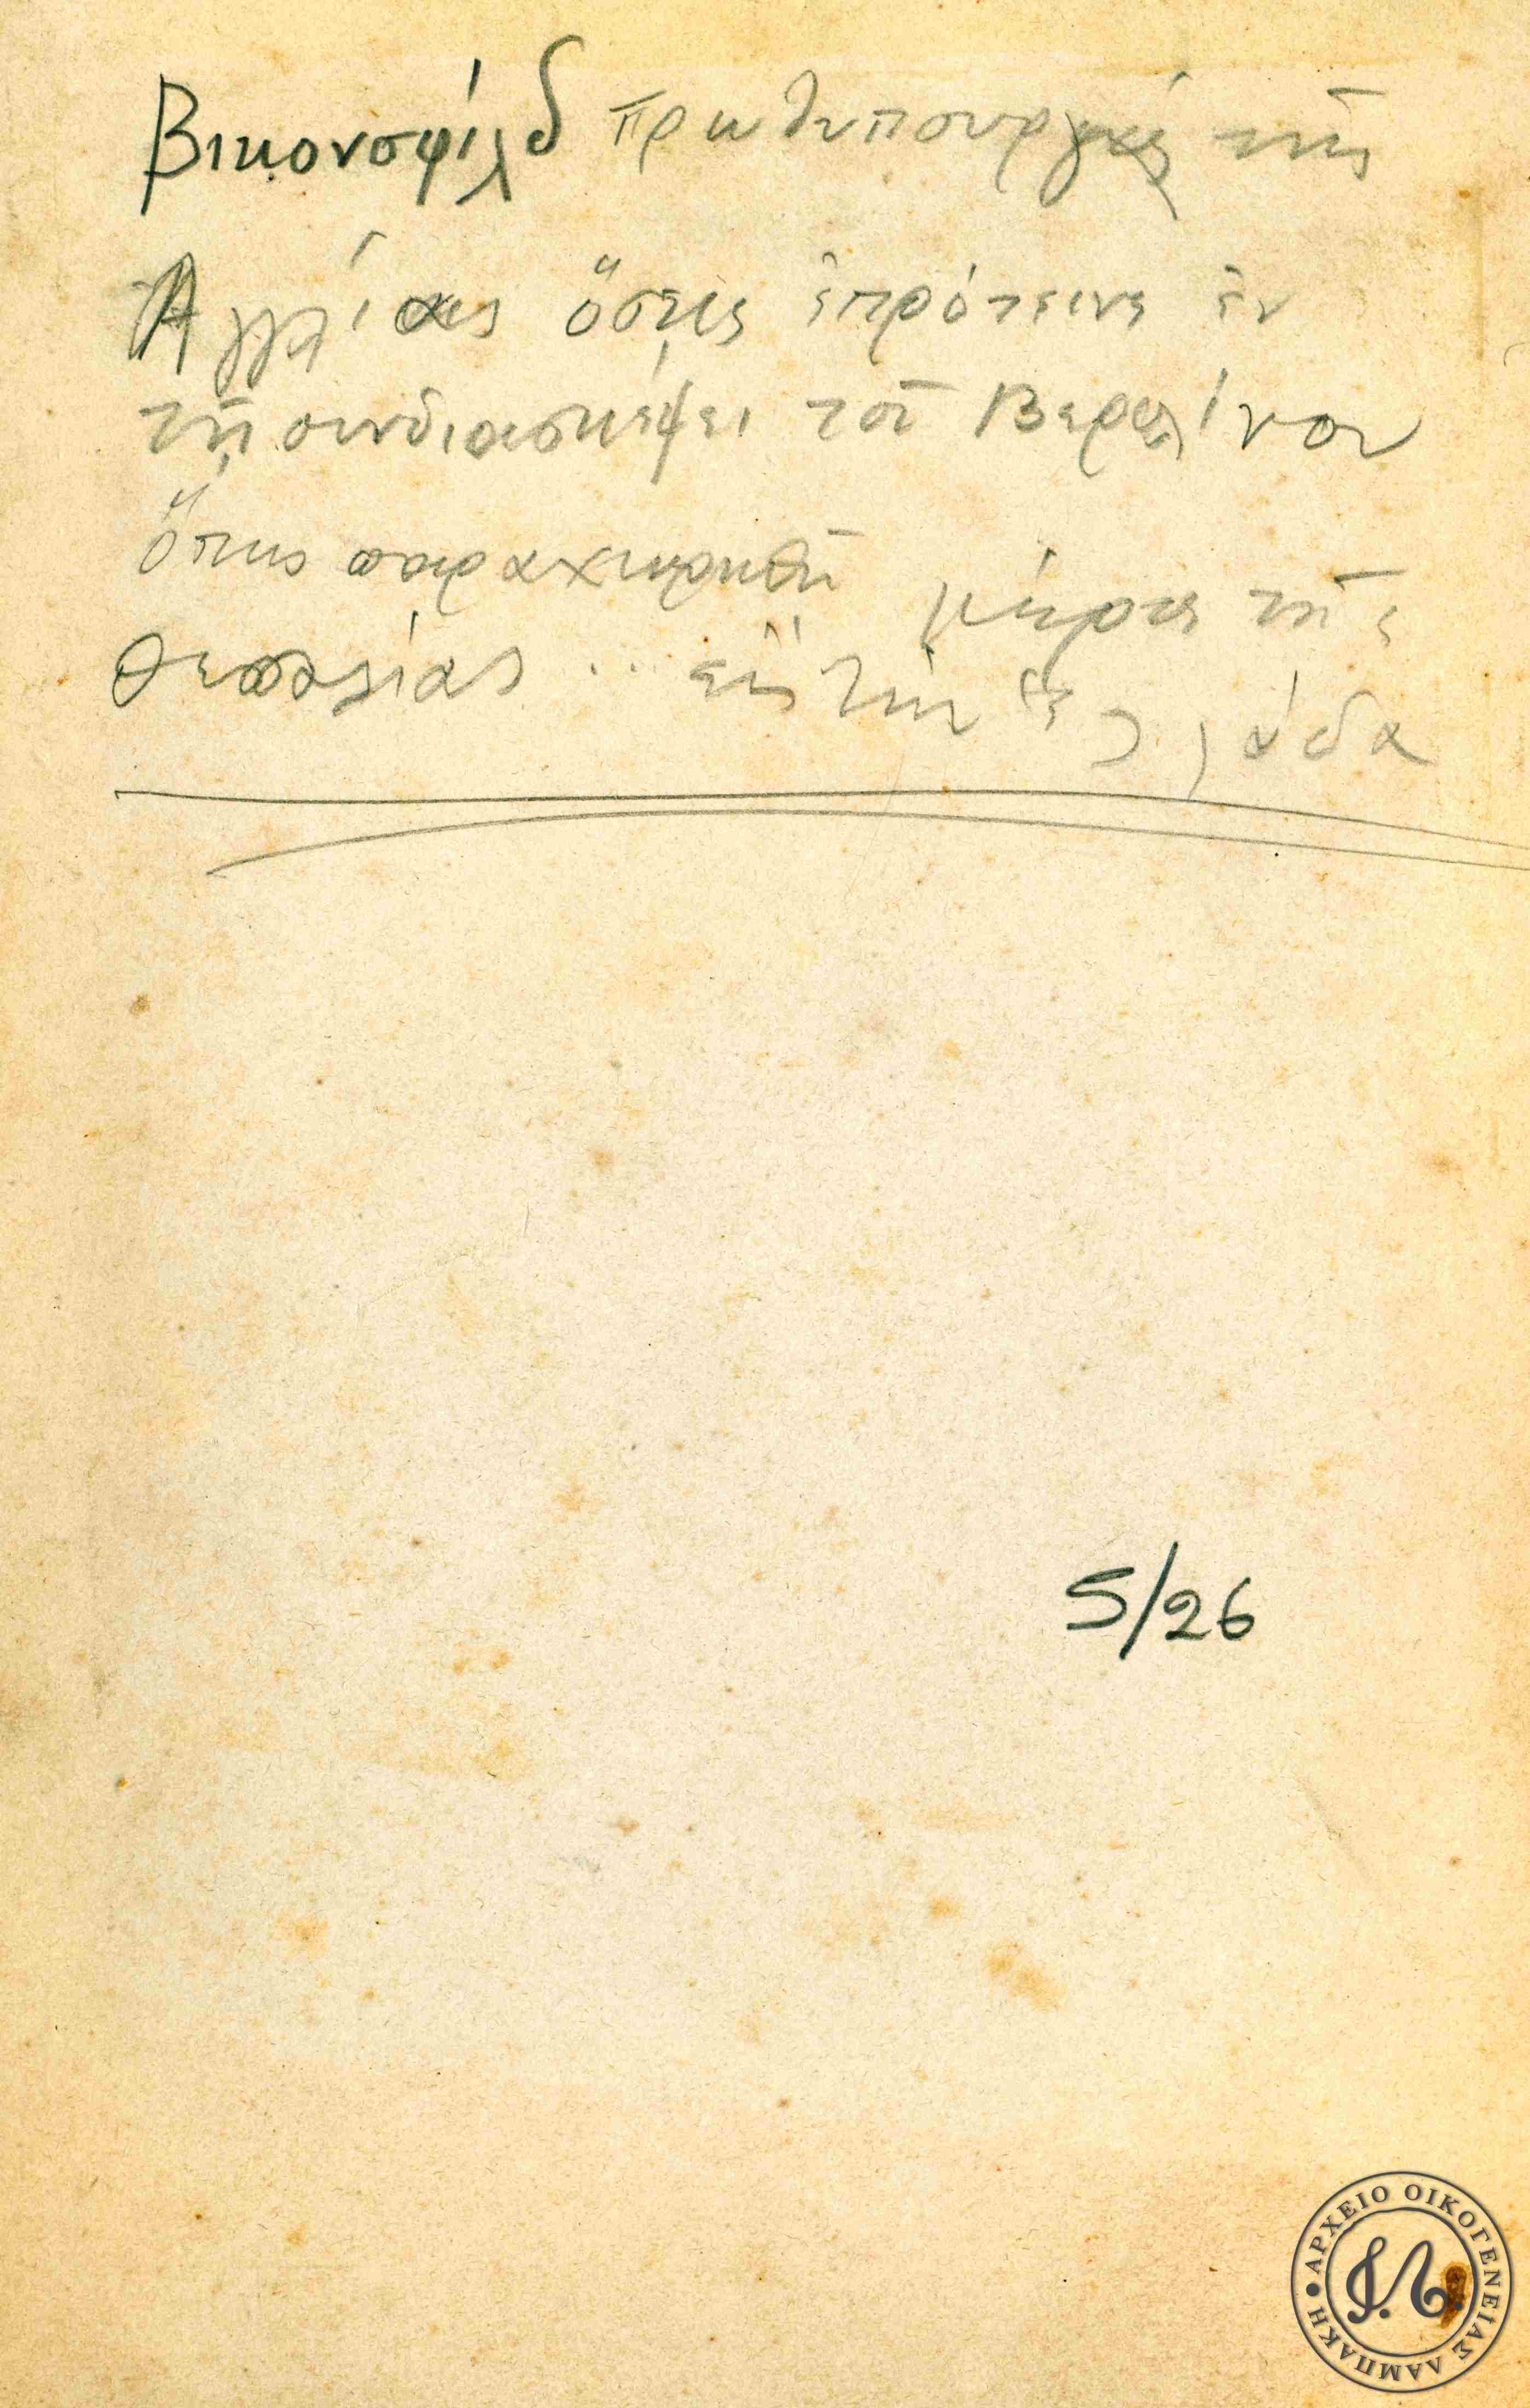 Βικονσφίλδ πρωθυπουργός τῆς
Ἀγγλίας ὅστις ἐπρότεινε ἐν
τῇ συνδιασκέψει τοῦ Βερολίνου
ὅπως παραχωρηθῇ μέρος τῆς
Θεσσαλίας ... εἰς τὴν Ἑλλάδα
5/26
ΑΡΧΕΙΟ ΟΙΚΟΓΕΝΕΙΑΣ ΛΑΜΠΑΚΗ